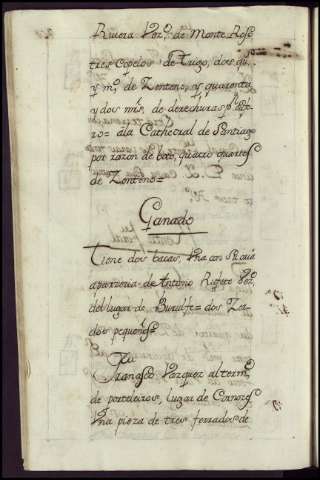 Rivera Vez.º de Monte Roso
tres Copelos de Trigo, dos qu.
y m.º de Zenteno, y quarenta
y dos mrs. de derechuras
ro= ala Cathedral de Santiago
por razon de boto, quatro quartos
de Zenteno=
Ganado
Tiene dos bacas, Una con su cria
aparzeria de Antonio Vez.º
del lugar de = dos Zer-
dos pequeños=
Franzisco Vazquez al term.º
de porteleiros, lugar de
Una pieza de tres ferrados de